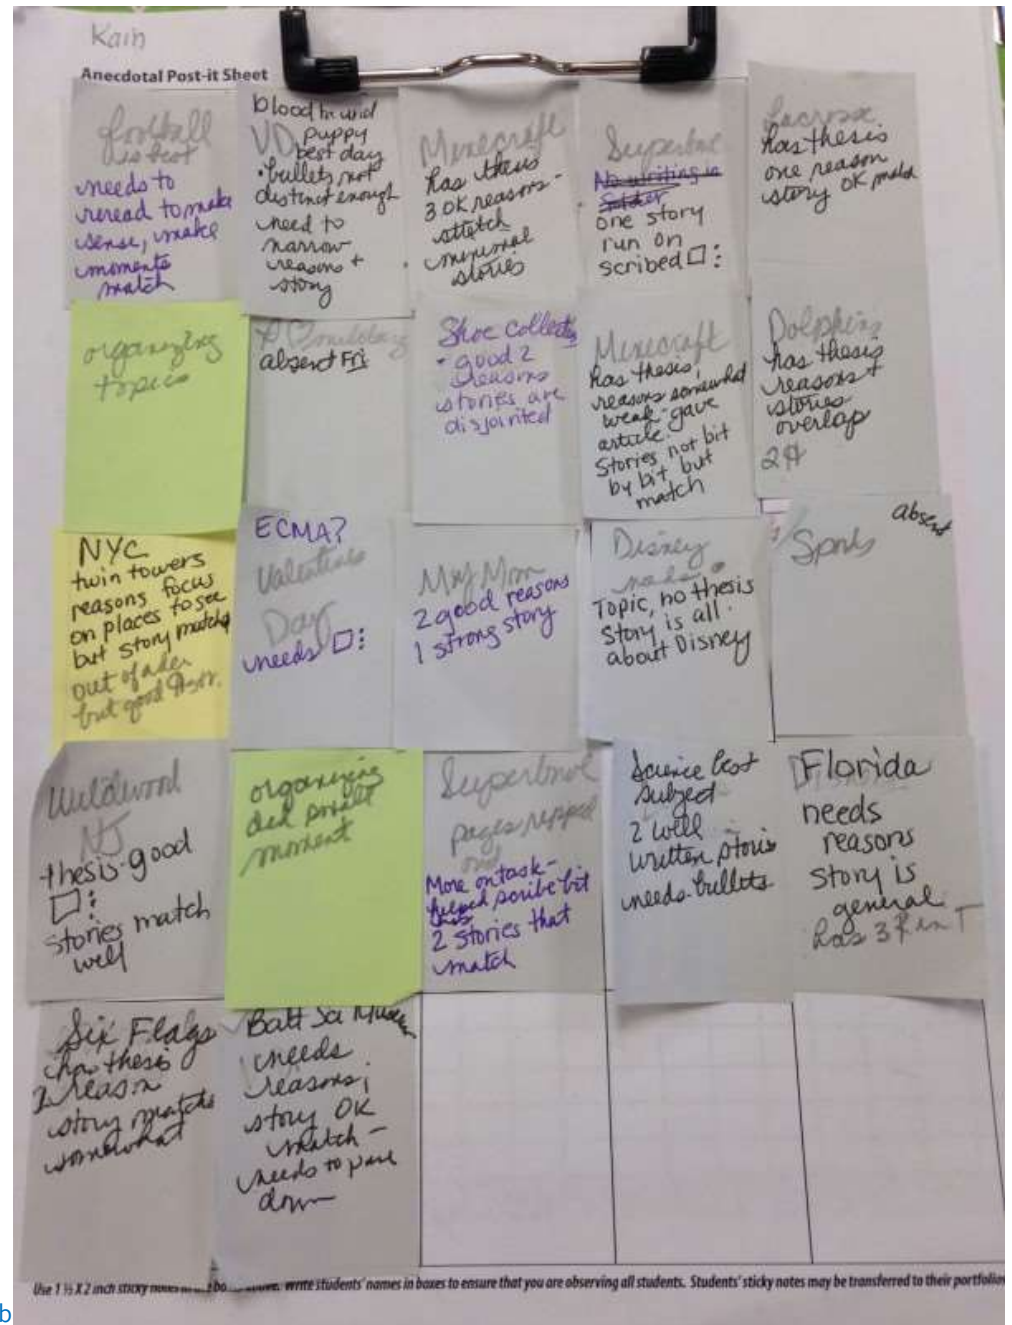 Kain
Anecdotal Post-it Sheet
football
is best
needs to
reread to make
sense, make
moments
match
blood hound
puppy
best day
• bullets not
distinct enough
need to
narrow
reasons +
story
Minecraft
has thesis
3 OK reasons -
stretch
minimal
stories
Superbowl
No writing in
folder
one story
run on
scribed □:
Lacrosse
has thesis
one reason
story OK match
organizing
topics
absent Fri
Shoe Collecting
• good 2
reasons
stories are
disjointed
Minecraft
has thesis,
reasons somewhat
weak - gave
article.
Stories not bit
by bit but
match
Dolphins
has thesis
reasons +
stories
overlap
NYC
twin towers
reasons focus
on places to see
but story matches
out of order
but good
ECMA?
Valentines
Day
needs □:
My Mom
2 good reasons
1 strong story
Disney
Topic, no thesis
Story is all
about Disney
absent
Sports
Wildwood
NJ
thesis-good
□:
stories match
well
organizing
did small
moment
Superbowl
pages ripped
out
More on task -
helped scribe bit
2 stories that
match
Science best
subject
2 well
written stories
needs bullets
Florida
needs
reasons
story is
general
has 3 R in T
Six Flags
has thesis
2 reason
story matches
somewhat
needs
reasons;
story OK
match -
needs to pare
down
Use 1 ½ X 2 inch sticky notes
write students' names in boxes to ensure that you are observing all students. Students' sticky notes may be transferred to their portfolios
b